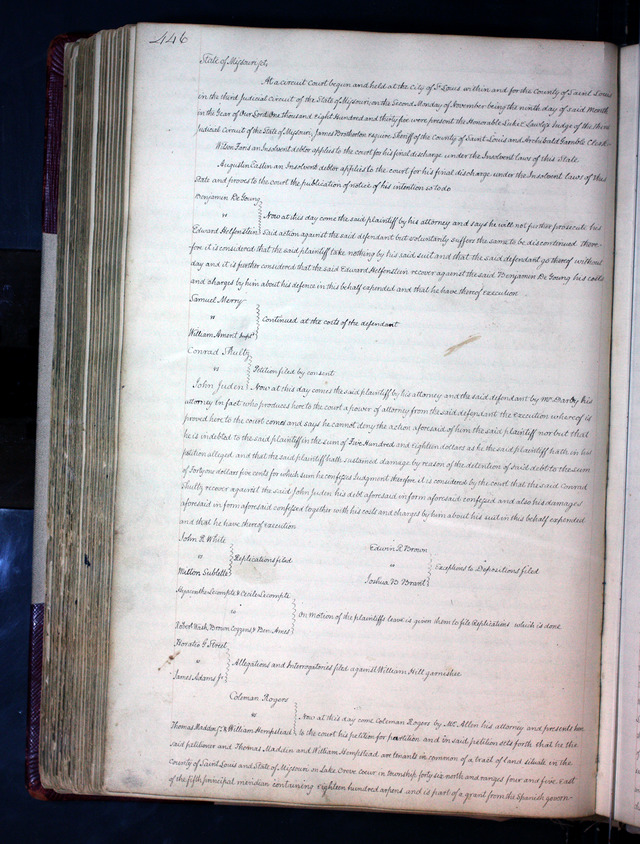 446
State of Missouri, sct,
At a circuit Court begun and held at the City of St Louis within and for the County of Saint Louis
in the third Judicial circuit of the State of Missouri on the Second Monday of November being the ninth day of said Month
in the Year of Our Lord One thousand eight Hundred and thirty five were present the Honorable Luke E Lawless Judge of the third
Judicial Circuit of the State of Missouri, James Brotherton esquire Sheriff of the County of Saint Louis and Archibald Gamble Clerk
Wilson Faris an Insolvent debtor applies to the court for his final discharge under the Insolvent laws of this State
Augustin Easlin an Insolvent debtor applies to the court for his final discharge under the Insolvent laws of this
State and proves to the court the publication of notice of his intention so to do
Benjamin De Young
vs
Edward Helfenstein
Now at this day come the said plaintiff by his attorney and says he will not further prosecute his
said action against the said defendant but voluntarily suffers the same to be discontinued there-
fore it is considered that the said plaintiff take nothing by his said suit and that the said defendant go thereof without
day and it is further considered that the said Edward Helfenstein recover against the said Benjamin De Young his costs
and charges by him about his defence in this behalf expended and that he have thereof execution
Samuel Merry
vs
William Ament
Continued at the costs of the defendant
Conrad Shultz
vs
John Juden
Petition filed by consent
Now at this day comes the said plaintiff by his attorney and the said defendant by Mr Darby his
attorney in fact who produces here to the court a power of attorney from the said defendant the execution whereof is
proved here to the court comes and says he cannot deny the action aforesaid of him the said plaintiff nor but that
he is indebted to the said plaintiff in the sum of Five Hundred and eighteen dollars as he the said plaintiff hath in his
petition alleged and that the said plaintiff hath sustained damage by reason of the detention of said debt to the sum
of Forty one dollars five cents for which sum he confesses Judgment therefore it is considered by the court that the said Conrad
Shultz recover against the said John Juden his debt aforesaid in form aforesaid confessed and also his damages
aforesaid in form aforesaid confessed together with his costs and charges by him about his suit in this behalf expended
and that he have thereof execution
John R White
vs
Milton Sublette
Replications filed
Edwin R Brown
vs
Joshua B Brant
Exceptions to Depositions filed
Hyacinthe Lecompte & Cecile Lecompte
vs
Robert Wash Brown Coppins & Ben Ames
On motion of the plaintiffs leave is given them to file Replications which is done
Horatio G Street
vs
James Adams Jr
Allegations and Interrogatories filed against William Hill garnishee
Coleman Rogers
vs
Thomas Maddin Jr & William Hempstead
Now at this day come Coleman Rogers by Mr. Allen his attorney and presents here
to the court his petition for partition and in said petition sets forth that he the
said petitioner and Thomas Maddin and William Hempstead are tenants in common of a tract of land situate in the
County of Saint Louis and State of Missouri on Lake Creve coeur in township forty six north and ranges four and five East
of the fifth principal meridian containing eighteen hundred arpens and is part of a grant from the Spanish govern-